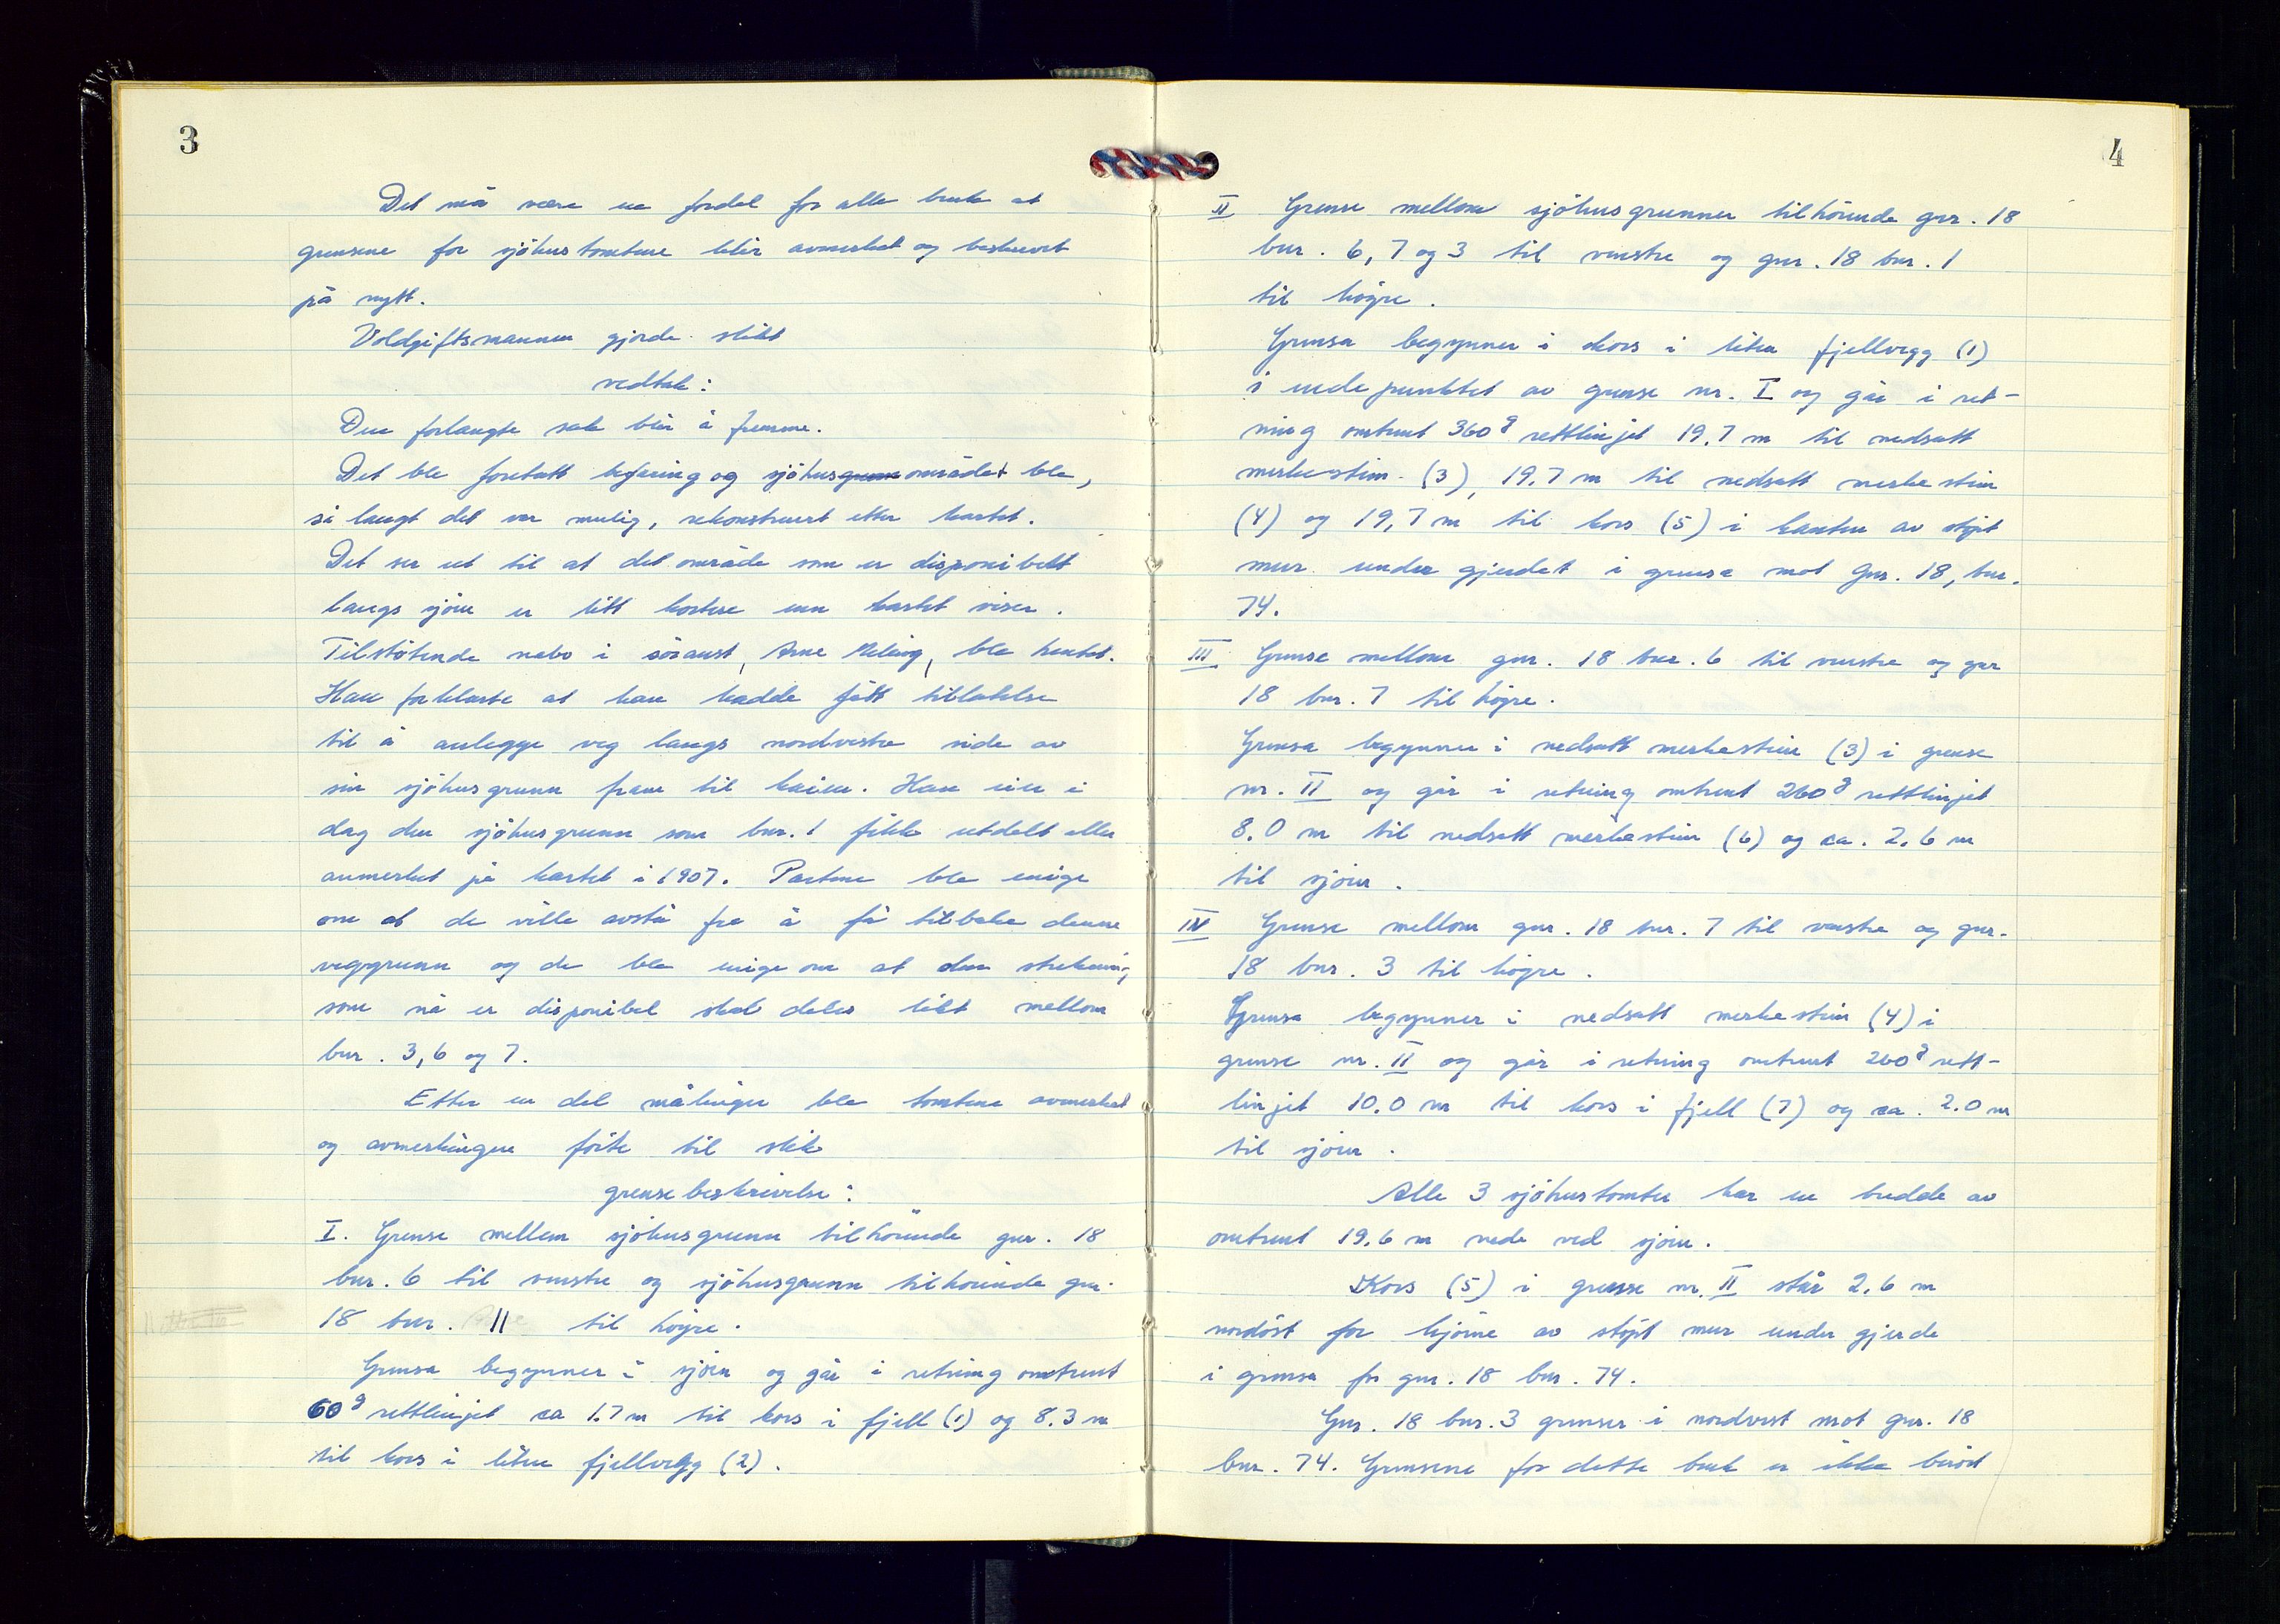 3
Det må være en fordel for alle bruk at
grensene for sjöhustomtene blir avmerket og beskrevet
på nytt.
Voldgiftsmannen gjorde slikt
vedtak:
Den forlangte sak blir å fremme.
Det ble foretatt befaring og sjöhusgrunnområdet ble,
så langt det var mulig, rekonstruert etter kartet.
Det ser ut til at det område som er disponibelt
langs sjöen er litt kortere enn kartet viser.
Tilstötende nabo i söraust, Arne Meling, ble hentet.
Han forklarte at han hadde fått tillatelse
til å anlegge veg langs nordvestre side av
sin sjöhusgrunn fram til kaien. Han eier i
dag den sjöhusgrunn som bnr. 1 fikk utdelt eller
anmerket på kartet i 1907. Partene ble enige
om at de ville avstå fra å få tilbake denne
veggrunn og de ble enige om at den strekning,
som nå er disponibel skal deles likt mellom
bnr. 3, 6 og 7.
Etter en del målinger ble tomtene avmerket
og avmerkingen förte til slik
grensebeskrivelse:
I. Grense mellem sjöhusgrunn tilhörende gnr. 18
bnr. 6 til venstre og sjöhusgrunn tilhörende gnr.
18 bnr. 11 til högre.
Grensa begynner i sjöen og går i retning omtrent
60g rettlinjet ca 1.7 m til kors i fjell (1) og 8.3 m
til kors i liten fjellvegg (2).
4
II Grense mellom sjöhusgrunner tilhörende gnr. 18
bnr. 6, 7 og 3 til venstre og gnr. 18 bnr. 1
til högre.
Grensa begynner i kors i liten fjellvegg (1)
i endepunktet av grense nr. I og går i ret-
ning omtrent 360g rettlinjet 19.7 m til nedsatt
merkestein (3), 19.7 m til nedsatt merkestein
(4) og 19,7 m til kors (5) i kanten av stöpt
mur under gjerdet i grensa mot Gnr. 18, bnr.
74.
III Grense mellom gnr. 18 bnr. 6 til venstre og gnr
18 bnr. 7 til högre.
Grensa begynner i nedsatt merkestein (3) i grense
nr. II og går i retning omtrent 260g rettlinjet
8.0 m til nedsatt merkestein (6) og ca. 2.6 m
til sjöen.
IV Grense mellom gnr. 18 bnr. 7 til venstre og gnr.
18 bnr. 3 til högre.
Grensa begynner i nedsatt merkestein (4) i
grense nr. II og går i retning omtrent 260g rett-
linjet 10.0 m til kors i fjell (7) og ca. 2.0 m
til sjöen.
Alle 3 sjöhustomter har en bredde av
omtrent 19.6 m nede ved sjöen.
Kors (5) i grense nr. II står 2.6 m
nordöst for hjörne av stöpt mur under gjerde
i grensa for gnr. 18 bnr. 74.
Gnr. 18 bnr. 3 grenser i nordvest mot gnr. 18
bnr. 74. Grensene for dette bruk er ikke berört